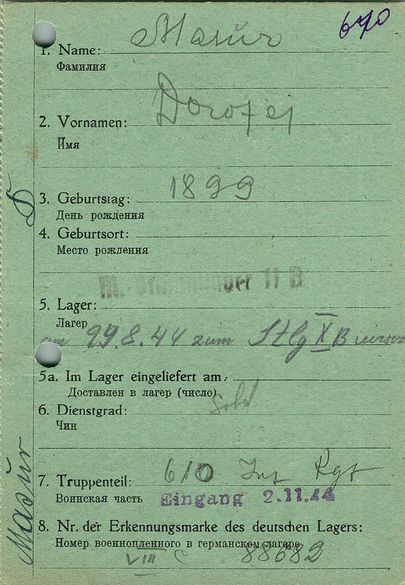 640
1. Name: Masur
Фамилия
2. Vornamen: Dorofej
Имя
3. Geburtstag: 1899
День рождения
4. Geburtsort:
Место рождения
11 B
5. Lager:
Лагерь
29.8.44 zum Stlg X B
5a. Im Lager eingeliefert am:
Доставлен в лагер (число)
6. Dienstgrad: Sold
Чин
7. Truppenteil: 610 Inf Rgt
Воинская часть Eingang 2.11.44
8. Nr. der Erkennungsmarke des deutschen Lagers:
Номер военнопленного в германском лагере
VIII C 88682
Masur D